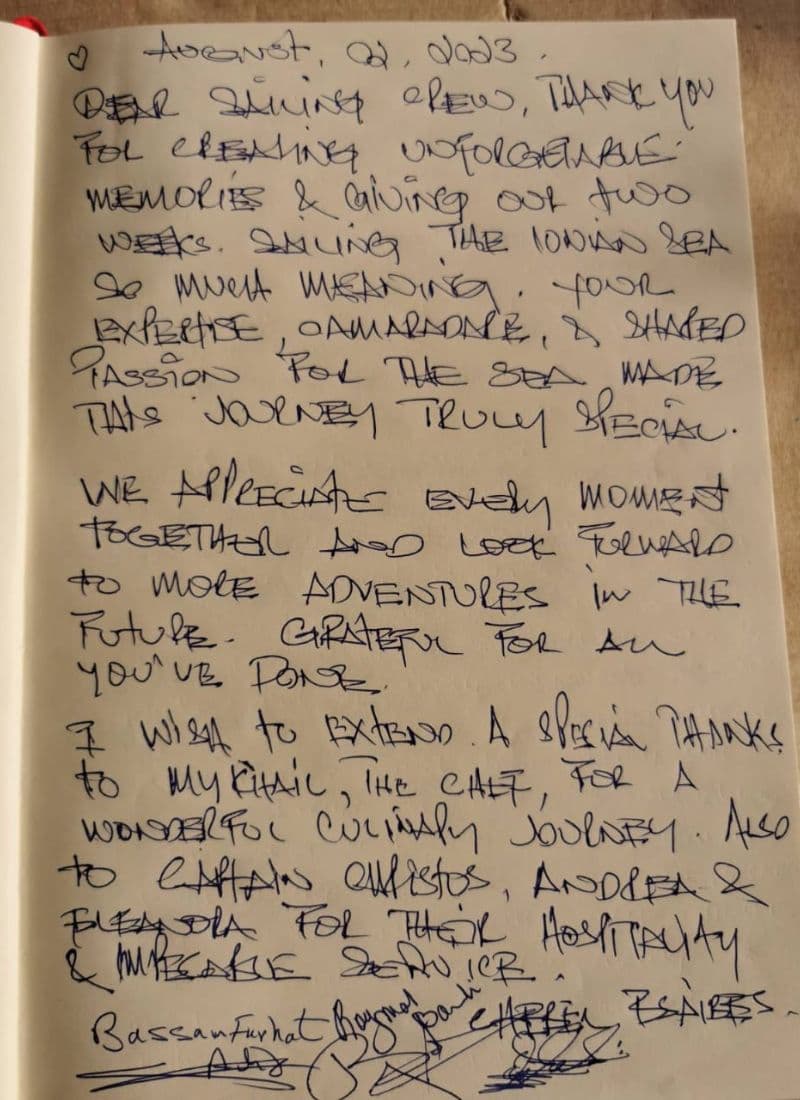 ♡ AUGUST, 02, 2023.
DEAR SAILING CREW, THANK YOU
FOR CREATING UNFORGETABLE
MEMORIES & GIVING OUR TWO
WEEKS. SAILING THE IONIAN SEA
SO MUCH MEANING. YOUR
EXPERTISE, CAMARADARE, & SHARED
PASSION FOR THE SEA MADE
THIS JOURNEY TRULY SPECIAL.
WE APPRECIATE EVERY MOMENT
TOGETHER AND LOOK FORWARD
TO MORE ADVENTURES IN THE
FUTURE. GRATEFUL FOR ALL
YOU'VE DONE.
I WISH TO EXTEND A SPECIAL THANKS
TO MYKHAIL, THE CHEF, FOR A
WONDERFUL CULINARY JOURNEY. ALSO
TO CAPTAIN CHRISTOS, ANDREA &
ELEANORA FOR THEIR HOSPITALITY
& IMPECABLE SERVICE.
Bassam Farhat